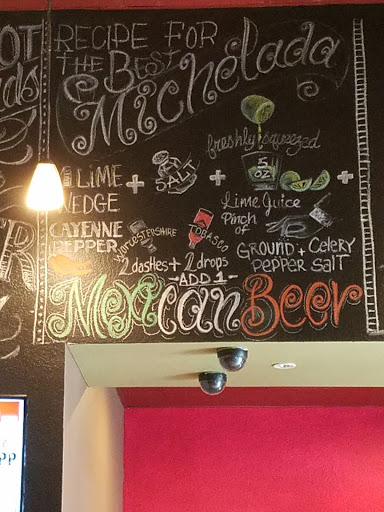 RECIPE FOR
THE BEST
Michelada
freshly squeezed
LIME + SALT + 5 OZ +
WEDGE Lime Juice
CAYENNE PEPPER WORCESTERSHIRE TOBASCO Pinch of
2 dashes + 2 drops GROUND PEPPER + Celery SALT
-ADD 1-
Mexican Beer
OT
ds
R
PP